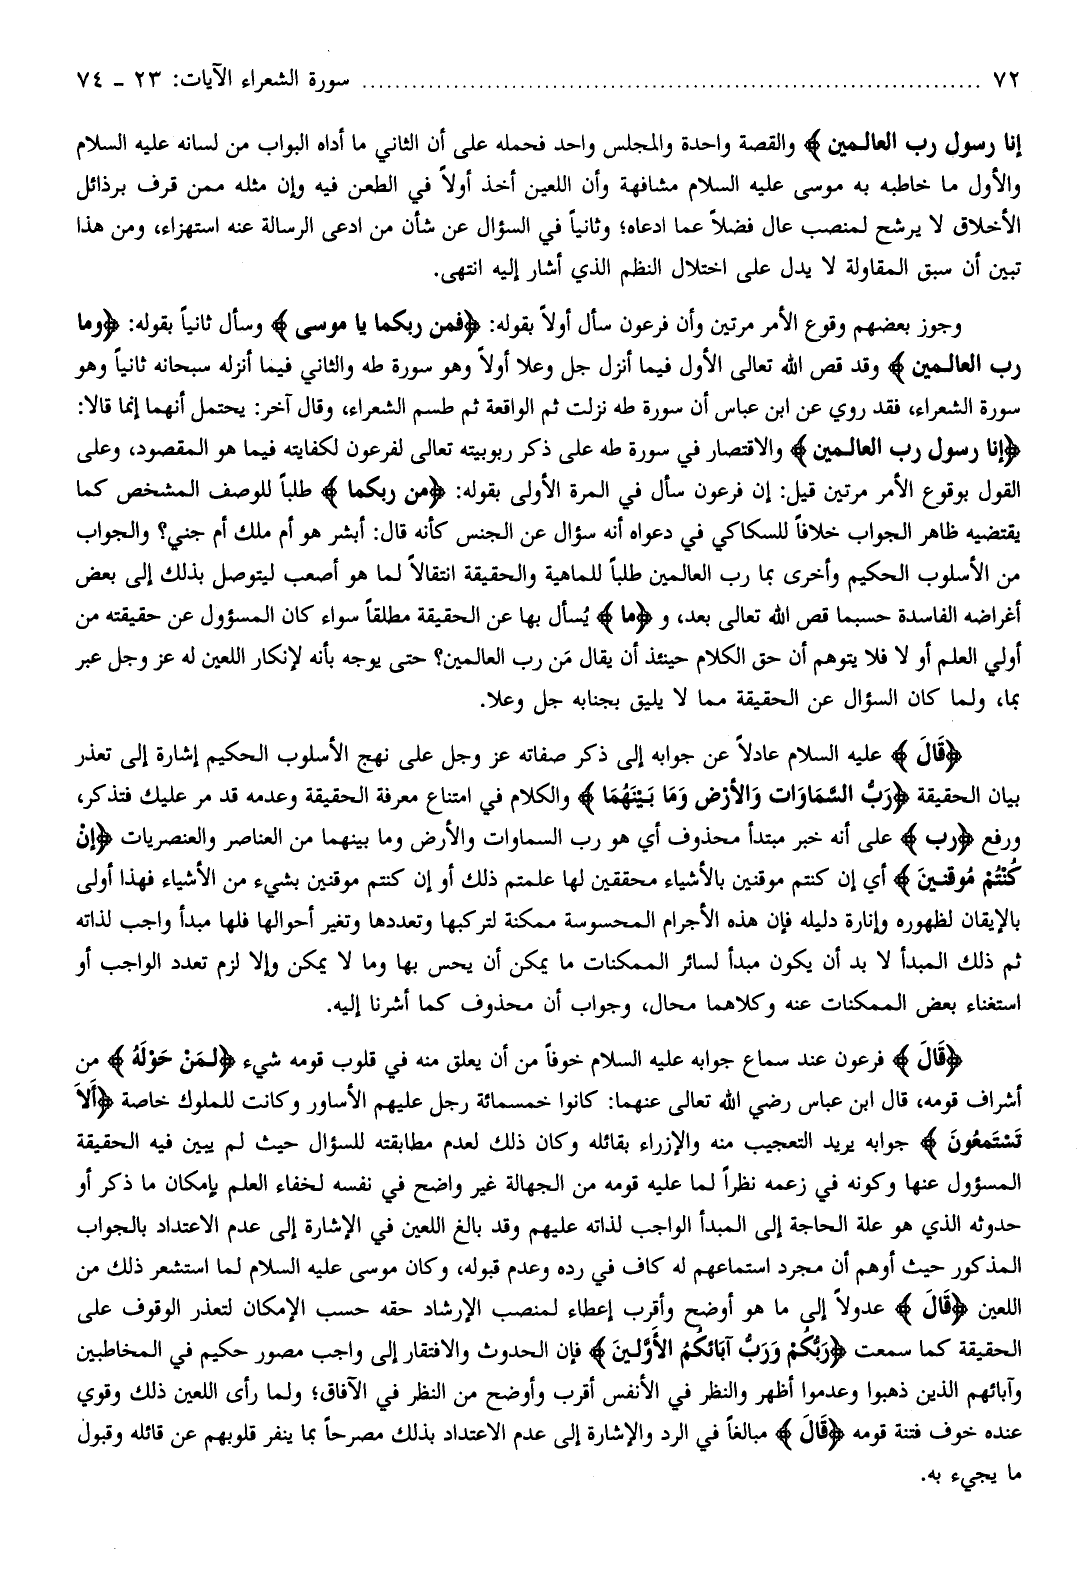 ٧٢ ........................................................................ سورة الشعراء الآيات: ٢٣ ـ ٧٤
إنا رسول رب العالمين ﴾ والقصة واحدة والمجلس واحد فحمله على أن الثاني ما أداه البواب من لسانه عليه السلام
والأول ما خاطبه به موسى عليه السلام مشافهة وأن اللعين أخذ أولاً في الطعن فيه وإن مثله ممن قرف برذائل
الأخلاق لا يرشح لمنصب عال فضلاً عما ادعاه؛ وثانياً في السؤال عن شأن من ادعى الرسالة عنه استهزاء، ومن هذا
تبين أن سبق المقاولة لا يدل على اختلال النظم الذي أشار إليه انتهى.
وجوز بعضهم وقوع الأمر مرتين وأن فرعون سأل أولاً بقوله: ﴿فمن ربكما يا موسى ﴾ وسأل ثانياً بقوله: ﴿وما
رب العالمين ﴾ وقد قص الله تعالى الأول فيما أنزل جل وعلا أولاً وهو سورة طه والثاني فيما أنزله سبحانه ثانياً وهو
سورة الشعراء، فقد روي عن ابن عباس أن سورة طه نزلت ثم الواقعة ثم طسم الشعراء، وقال آخر: يحتمل أنهما إنما قالا:
﴿إنا رسول رب العالمين ﴾ والاقتصار في سورة طه على ذكر ربوبيته تعالى لفرعون لكفايته فيما هو المقصود، وعلى
القول بوقوع الأمر مرتين قيل: إن فرعون سأل في المرة الأولى بقوله: ﴿من ربكما ﴾ طلباً للوصف المشخص كما
يقتضيه ظاهر الجواب خلافاً للسكاكي في دعواه أنه سؤال عن الجنس كأنه قال: أبشر هو أم ملك أم جني؟ والجواب
من الأسلوب الحكيم وأخرى بما رب العالمين طلباً للماهية والحقيقة انتقالاً لما هو أصعب ليتوصل بذلك إلى بعض
أغراضه الفاسدة حسبما قص الله تعالى بعد، و ﴿ما ﴾ يُسأل بها عن الحقيقة مطلقاً سواء كان المسؤول عن حقيقته من
أولي العلم أو لا فلا يتوهم أن حق الكلام حينئذ أن يقال مَن رب العالمين؟ حتى يوجه بأنه لإنكار اللعين له عز وجل عبر
بما، ولما كان السؤال عن الحقيقة مما لا يليق بجنابه جل وعلا.
﴿قَالَ ﴾ عليه السلام عادلاً عن جوابه إلى ذكر صفاته عز وجل على نهج الأسلوب الحكيم إشارة إلى تعذر
بيان الحقيقة ﴿رَبُّ السَّمَاوَات وَالأرْض وَمَا بَيْنَهُمَا ﴾ والكلام في امتناع معرفة الحقيقة وعدمه قد مر عليك فتذكر،
ورفع ﴿رب ﴾ على أنه خبر مبتدأ محذوف أي هو رب السماوات والأرض وما بينهما من العناصر والعنصريات ﴿إنْ
كُنْتُمْ مُوقنينَ ﴾ أي إن كنتم موقنين بالأشياء محققين لها علمتم ذلك أو إن كنتم موقنين بشيء من الأشياء فهذا أولى
بالإيقان لظهوره وإنارة دليله فإن هذه الأجرام المحسوسة ممكنة لتركبها وتعددها وتغير أحوالها فلها مبدأ واجب لذاته
ثم ذلك المبدأ لا بد أن يكون مبدأ لسائر الممكنات ما يمكن أن يحس بها وما لا يمكن وإلا لزم تعدد الواجب أو
استغناء بعض الممكنات عنه وكلاهما محال، وجواب أن محذوف كما أشرنا إليه.
﴿قَالَ ﴾ فرعون عند سماع جوابه عليه السلام خوفاً من أن يعلق منه في قلوب قومه شيء ﴿لمَنْ حَوْلَهُ ﴾ من
أشراف قومه، قال ابن عباس رضي الله تعالى عنهما: كانوا خمسمائة رجل عليهم الأساور وكانت للملوك خاصة ﴿أَلاَ
تَسْتَمعُونَ ﴾ جوابه يريد التعجيب منه والإزراء بقائله وكان ذلك لعدم مطابقته للسؤال حيث لم يبين فيه الحقيقة
المسؤول عنها وكونه في زعمه نظراً لما عليه قومه من الجهالة غير واضح في نفسه لخفاء العلم بإمكان ما ذكر أو
حدوثه الذي هو علة الحاجة إلى المبدأ الواجب لذاته عليهم وقد بالغ اللعين في الإشارة إلى عدم الاعتداد بالجواب
المذكور حيث أوهم أن مجرد استماعهم له كاف في رده وعدم قبوله، وكان موسى عليه السلام لما استشعر ذلك من
اللعين ﴿قَالَ ﴾ عدولاً إلى ما هو أوضح وأقرب إعطاء لمنصب الإرشاد حقه حسب الإمكان لتعذر الوقوف على
الحقيقة كما سمعت ﴿رَبُّكُمْ وَرَبُّ آبَائكُمُ الأَوَّلينَ ﴾ فإن الحدوث والافتقار إلى واجب مصور حكيم في المخاطبين
وآبائهم الذين ذهبوا وعدموا أظهر والنظر في الأنفس أقرب وأوضح من النظر في الآفاق؛ ولما رأى اللعين ذلك وقوي
عنده خوف فتنة قومه ﴿قَالَ ﴾ مبالغاً في الرد والإشارة إلى عدم الاعتداد بذلك مصرحاً بما ينفر قلوبهم عن قائله وقبول
ما يجيء به.